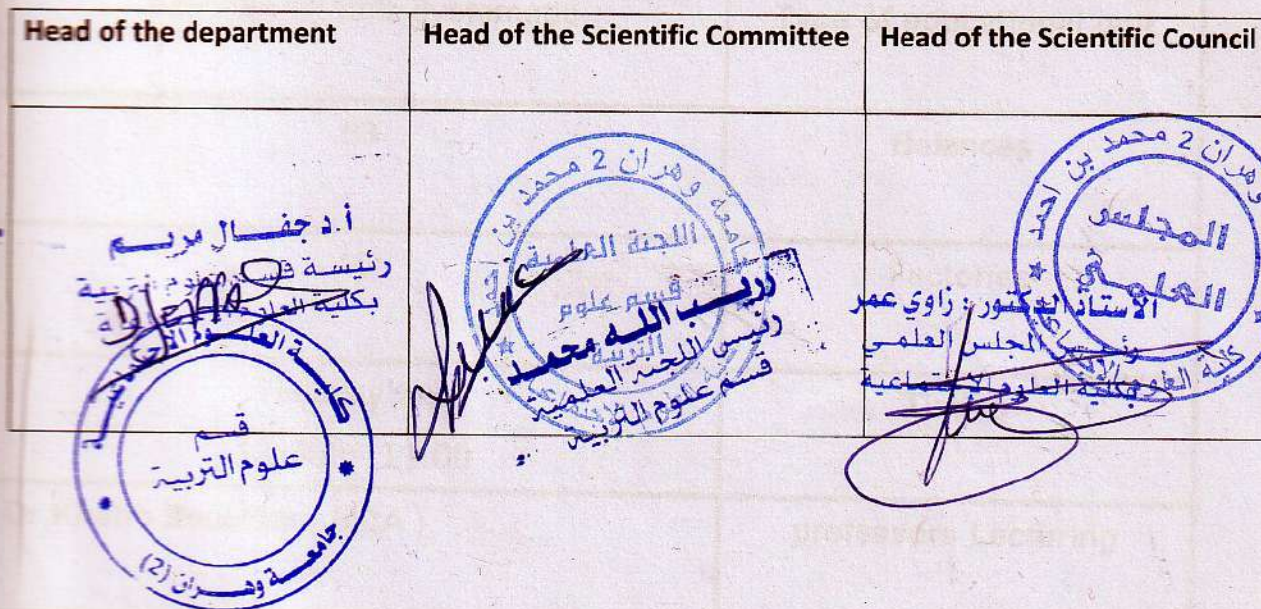 Head of the department
Head of the Scientific Committee
Head of the Scientific Council
أ.د جفال مريم
رئيسة قسم علوم التربية
بكلية العلوم
كلية العلوم الاجتماعية
قسم
علوم التربية
جامعة وهران (2)
جامعة وهران 2 محمد بن
اللجنة العلمية
قسم علوم
التربية
الله محمد
رئيس اللجنة العلمية
قسم علوم التربية
وهران 2 محمد بن احمد
المجلس
العلمي
كلية العلوم الاجتماعية
الاستاذ الدكتور : زاوي عمر
رئيس المجلس العلمي
بكلية العلوم الإجتماعية